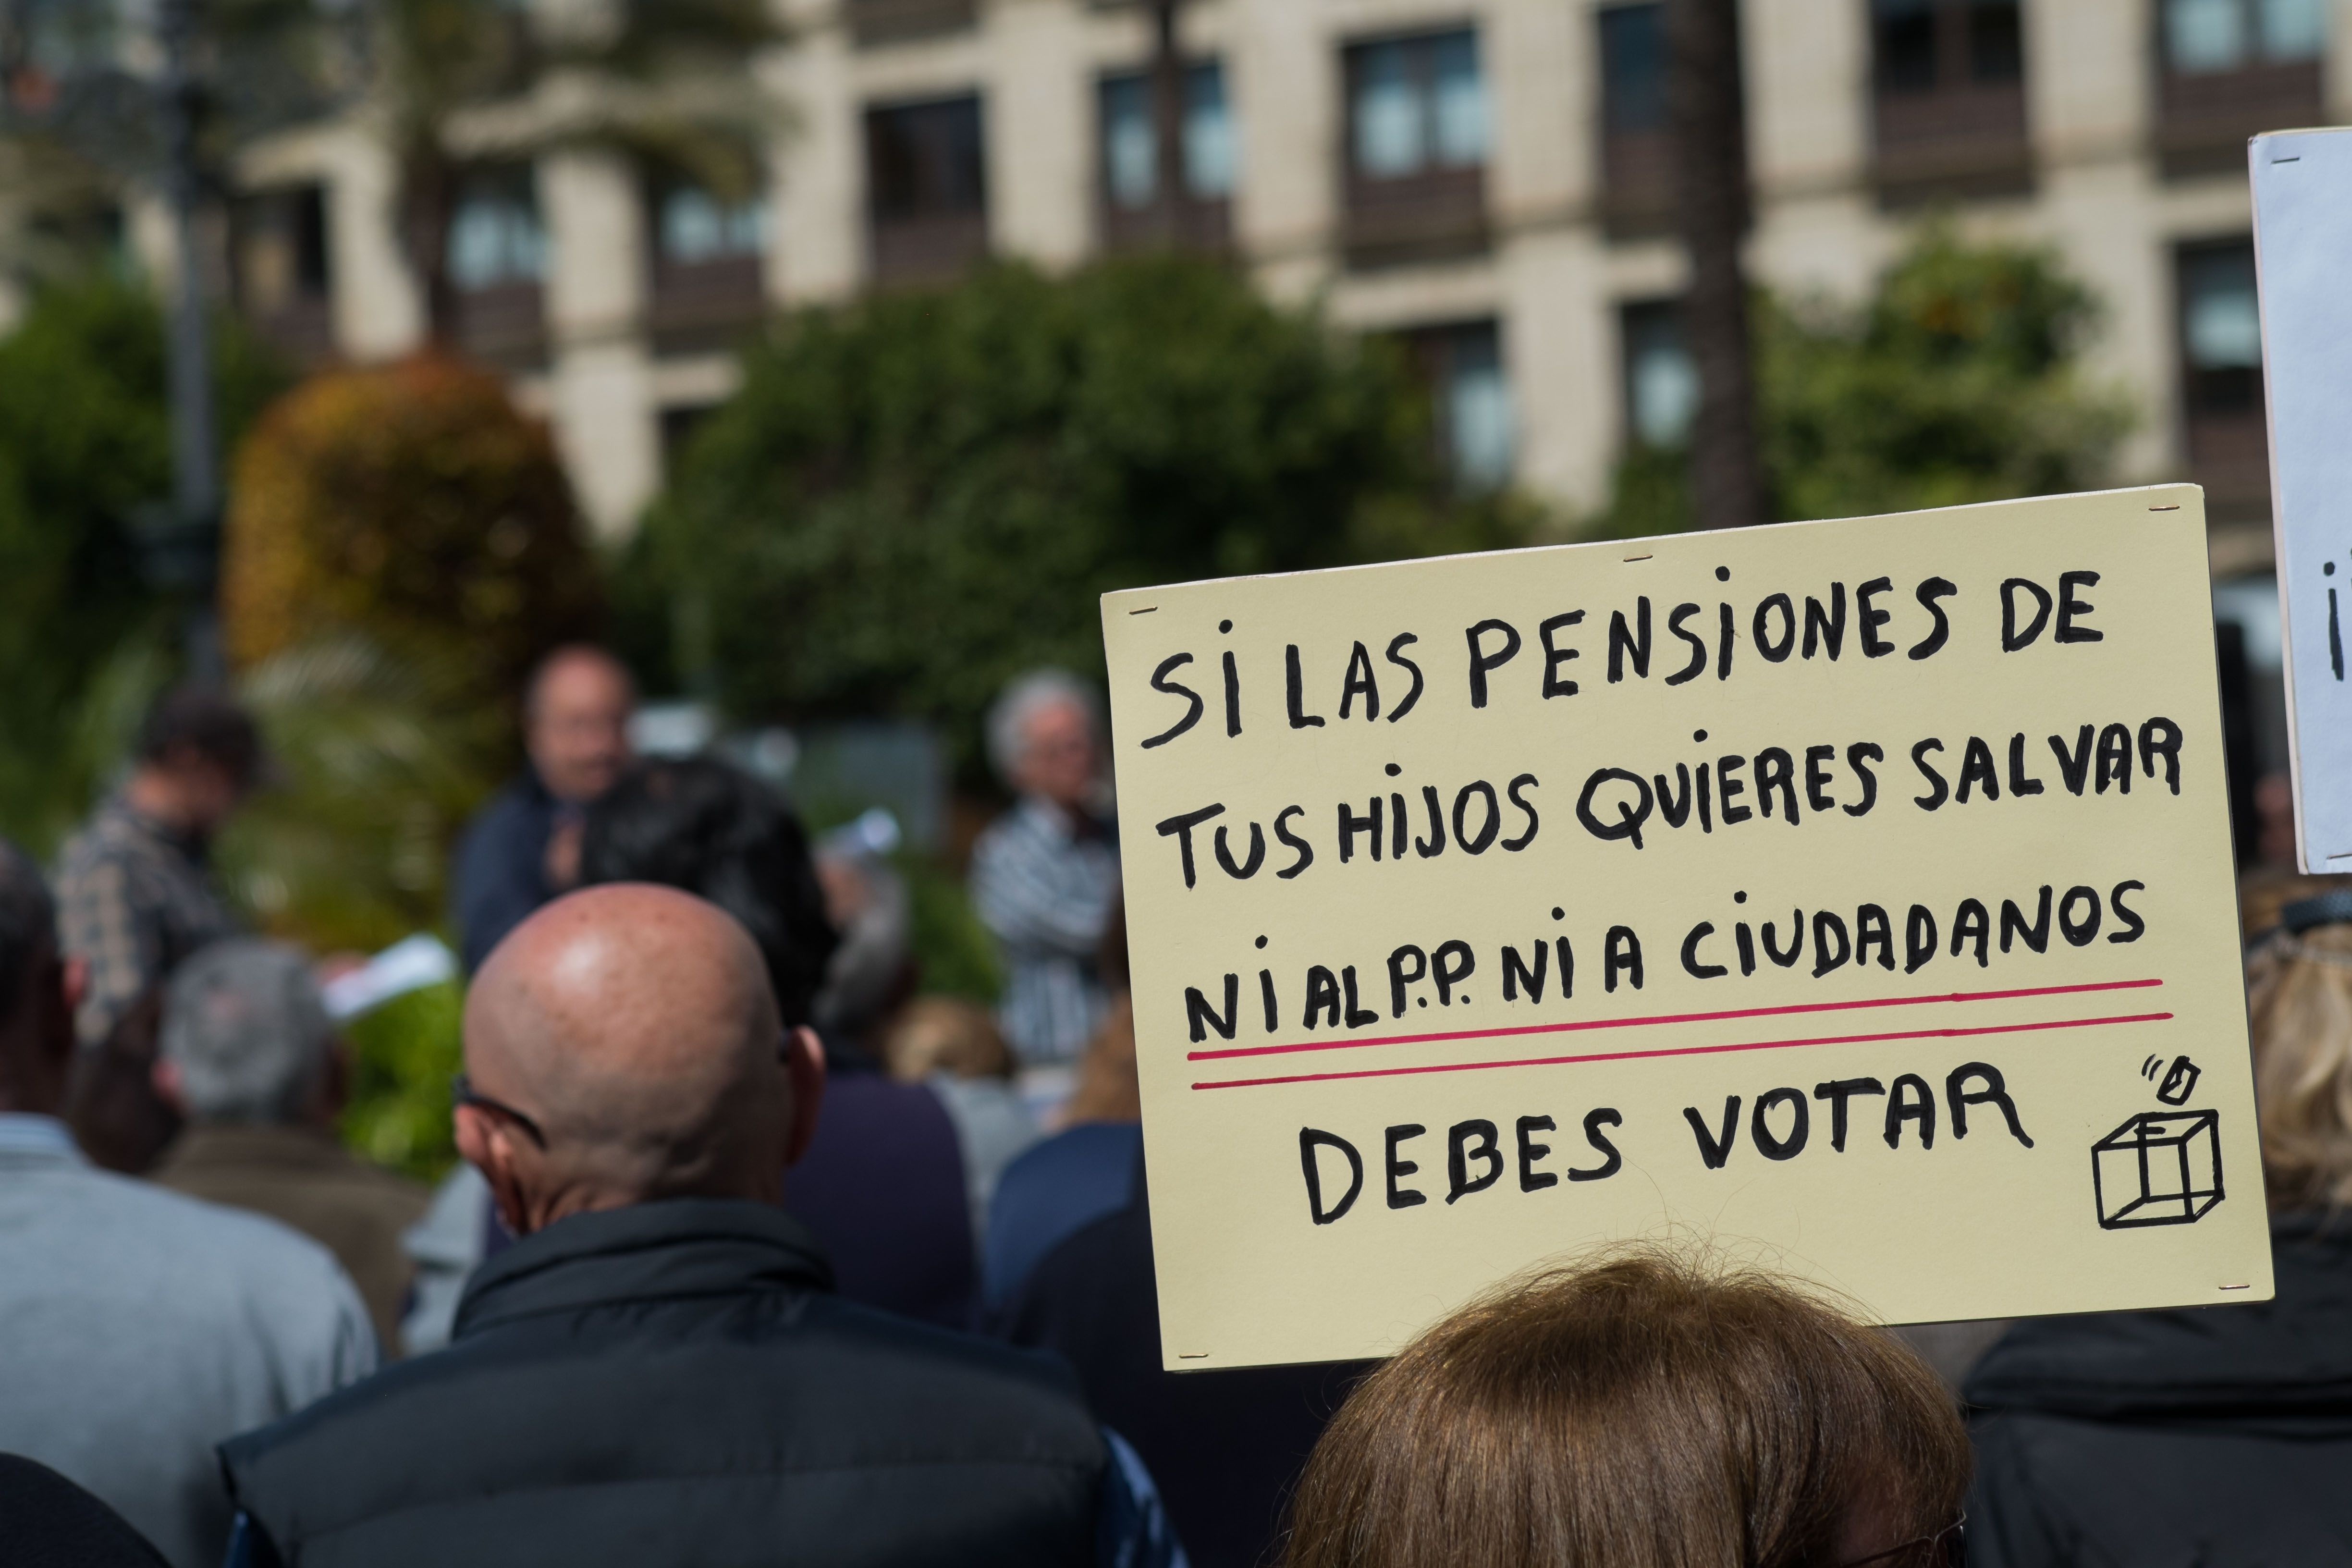 Si LAS PENSiONES DE
TUS HiJOS QUiERES SALVAR
Ni AL P.P. Ni A CiUDADANOS
DEBES VOTAR
¡